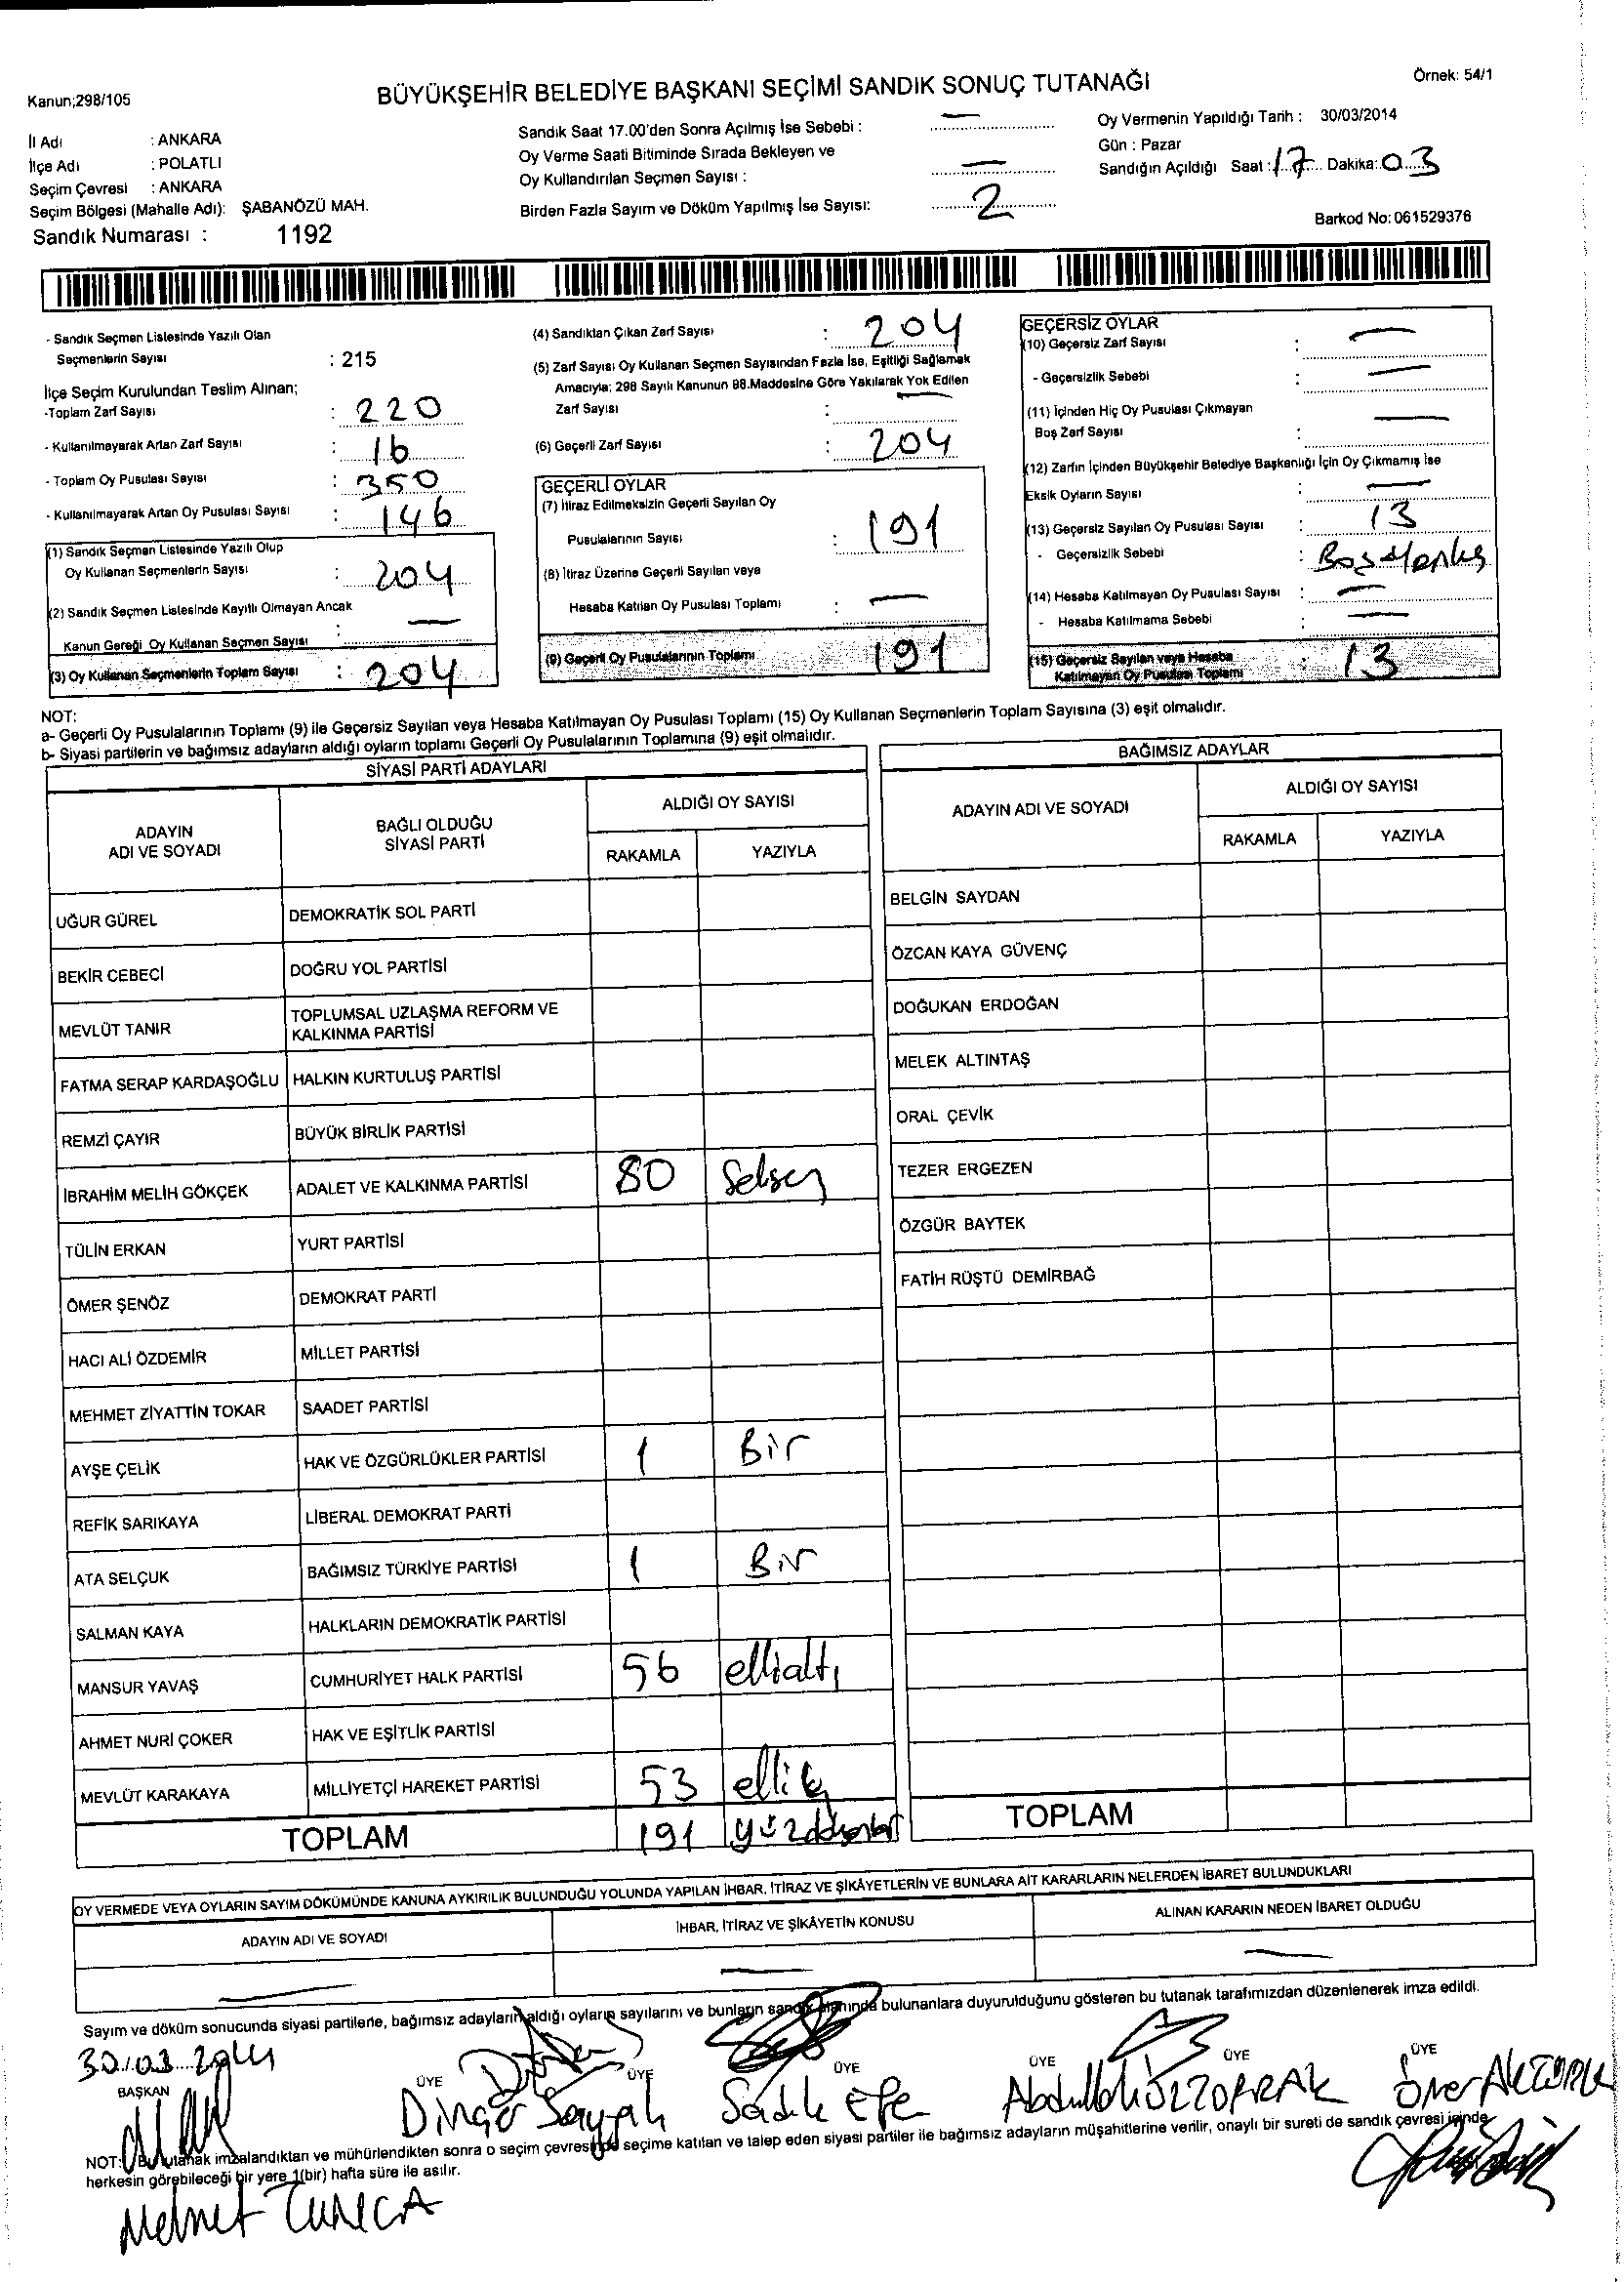 Kanun;298/105
BÜYÜKŞEHİR BELEDİYE BAŞKANI SEÇİMİ SANDIK SONUÇ TUTANAĞI
Örnek: 54/1
İl Adı : ANKARA
İlçe Adı : POLATLI
Seçim Çevresi : ANKARA
Seçim Bölgesi (Mahalle Adı): ŞABANÖZÜ MAH.
Sandık Numarası : 1192
Sandık Saat 17.00'den Sonra Açılmış İse Sebebi : —
Oy Verme Saati Bitiminde Sırada Bekleyen ve
Oy Kullandırılan Seçmen Sayısı : —
Birden Fazla Sayım ve Döküm Yapılmış İse Sayısı: 2
Oy Vermenin Yapıldığı Tarih : 30/03/2014
Gün : Pazar
Sandığın Açıldığı Saat : 17 Dakika: 03
Barkod No: 061529376
- Sandık Seçmen Listesinde Yazılı Olan
Seçmenlerin Sayısı : 215
İlçe Seçim Kurulundan Teslim Alınan;
-Toplam Zarf Sayısı : 220
- Kullanılmayarak Artan Zarf Sayısı : 16
- Toplam Oy Pusulası Sayısı : 350
- Kullanılmayarak Artan Oy Pusulası Sayısı : 146
(1) Sandık Seçmen Listesinde Yazılı Olup
Oy Kullanan Seçmenlerin Sayısı : 204
(2) Sandık Seçmen Listesinde Kayıtlı Olmayan Ancak
Kanun Gereği Oy Kullanan Seçmen Sayısı : —
(3) Oy Kullanan Seçmenlerin Toplam Sayısı : 204
(4) Sandıktan Çıkan Zarf Sayısı : 204
(5) Zarf Sayısı Oy Kullanan Seçmen Sayısından Fazla İse, Eşitliği Sağlamak
Amacıyla; 298 Sayılı Kanunun 98.Maddesine Göre Yakılarak Yok Edilen
Zarf Sayısı : —
(6) Geçerli Zarf Sayısı : 204
GEÇERLİ OYLAR
(7) İtiraz Edilmeksizin Geçerli Sayılan Oy
Pusulalarının Sayısı : 191
(8) İtiraz Üzerine Geçerli Sayılan veya
Hesaba Katılan Oy Pusulası Toplamı : —
(9) Geçerli Oy Pusulalarının Toplamı 191
GEÇERSİZ OYLAR
(10) Geçersiz Zarf Sayısı : —
- Geçersizlik Sebebi : —
(11) İçinden Hiç Oy Pusulası Çıkmayan
Boş Zarf Sayısı : —
(12) Zarfın İçinden Büyükşehir Belediye Başkanlığı İçin Oy Çıkmamış İse
Eksik Oyların Sayısı : —
(13) Geçersiz Sayılan Oy Pusulası Sayısı : 13
- Geçersizlik Sebebi : Boş
(14) Hesaba Katılmayan Oy Pusulası Sayısı : —
- Hesaba Katılmama Sebebi : —
(15) Geçersiz Sayılan veya Hesaba
Katılmayan Oy Pusulası Toplamı : 13
NOT:
a- Geçerli Oy Pusulalarının Toplamı (9) ile Geçersiz Sayılan veya Hesaba Katılmayan Oy Pusulası Toplamı (15) Oy Kullanan Seçmenlerin Toplam Sayısına (3) eşit olmalıdır.
b- Siyasi partilerin ve bağımsız adayların aldığı oyların toplamı Geçerli Oy Pusulalarının Toplamına (9) eşit olmalıdır.
SİYASİ PARTİ ADAYLARI
ADAYIN ADI VE SOYADI
BAĞLI OLDUĞU SİYASİ PARTİ
ALDIĞI OY SAYISI
RAKAMLA YAZIYLA
UĞUR GÜREL DEMOKRATİK SOL PARTİ
BEKİR CEBECİ DOĞRU YOL PARTİSİ
MEVLÜT TANIR TOPLUMSAL UZLAŞMA REFORM VE KALKINMA PARTİSİ
FATMA SERAP KARDAŞOĞLU HALKIN KURTULUŞ PARTİSİ
REMZİ ÇAYIR BÜYÜK BİRLİK PARTİSİ
İBRAHİM MELİH GÖKÇEK ADALET VE KALKINMA PARTİSİ 80 Seksen
TÜLİN ERKAN YURT PARTİSİ
ÖMER ŞENÖZ DEMOKRAT PARTİ
HACI ALİ ÖZDEMİR MİLLET PARTİSİ
MEHMET ZİYATTİN TOKAR SAADET PARTİSİ
AYŞE ÇELİK HAK VE ÖZGÜRLÜKLER PARTİSİ 1 Bir
REFİK SARIKAYA LİBERAL DEMOKRAT PARTİ
ATA SELÇUK BAĞIMSIZ TÜRKİYE PARTİSİ 1 Bir
SALMAN KAYA HALKLARIN DEMOKRATİK PARTİSİ
MANSUR YAVAŞ CUMHURİYET HALK PARTİSİ 56 ellialtı
AHMET NURİ ÇOKER HAK VE EŞİTLİK PARTİSİ
MEVLÜT KARAKAYA MİLLİYETÇİ HAREKET PARTİSİ 53
TOPLAM 191
BAĞIMSIZ ADAYLAR
ADAYIN ADI VE SOYADI
ALDIĞI OY SAYISI
RAKAMLA YAZIYLA
BELGİN SAYDAN
ÖZCAN KAYA GÜVENÇ
DOĞUKAN ERDOĞAN
MELEK ALTINTAŞ
ORAL ÇEVİK
TEZER ERGEZEN
ÖZGÜR BAYTEK
FATİH RÜŞTÜ DEMİRBAĞ
TOPLAM
OY VERMEDE VEYA OYLARIN SAYIM DÖKÜMÜNDE KANUNA AYKIRILIK BULUNDUĞU YOLUNDA YAPILAN İHBAR, İTİRAZ VE ŞİKÂYETLERİN VE BUNLARA AİT KARARLARIN NELERDEN İBARET BULUNDUKLARI
ADAYIN ADI VE SOYADI İHBAR, İTİRAZ VE ŞİKÂYETİN KONUSU ALINAN KARARIN NEDEN İBARET OLDUĞU
— — —
Sayım ve döküm sonucunda siyasi partilerle, bağımsız adayların aldığı oyların sayılarını ve bunların sandık alanında bulunanlara duyurulduğunu gösteren bu tutanak tarafımızdan düzenlenerek imza edildi.
30.03.2014
BAŞKAN ÜYE ÜYE ÜYE ÜYE ÜYE ÜYE
Dinçer Sayğalı Sadık EFE Abdullah ÖZTOPRAK Öner AKTÜRK
NOT: Bu tutanak imzalandıktan ve mühürlendikten sonra o seçim çevresinde seçime katılan ve talep eden siyasi partiler ile bağımsız adayların müşahitlerine verilir, onaylı bir sureti de sandık çevresi içinde
herkesin görebileceği bir yere 1(bir) hafta süre ile asılır.
Mehmet TUNCA